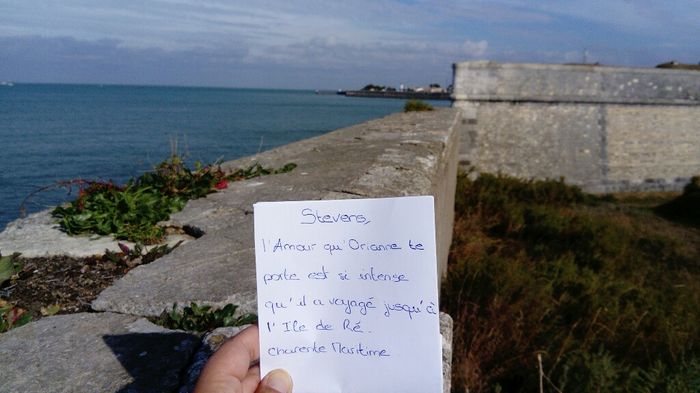 Stevens,
l'Amour qu'Orianne te
porte est si intense
qu'il a voyagé jusqu'à
l'Ile de Ré.
charente Maritime